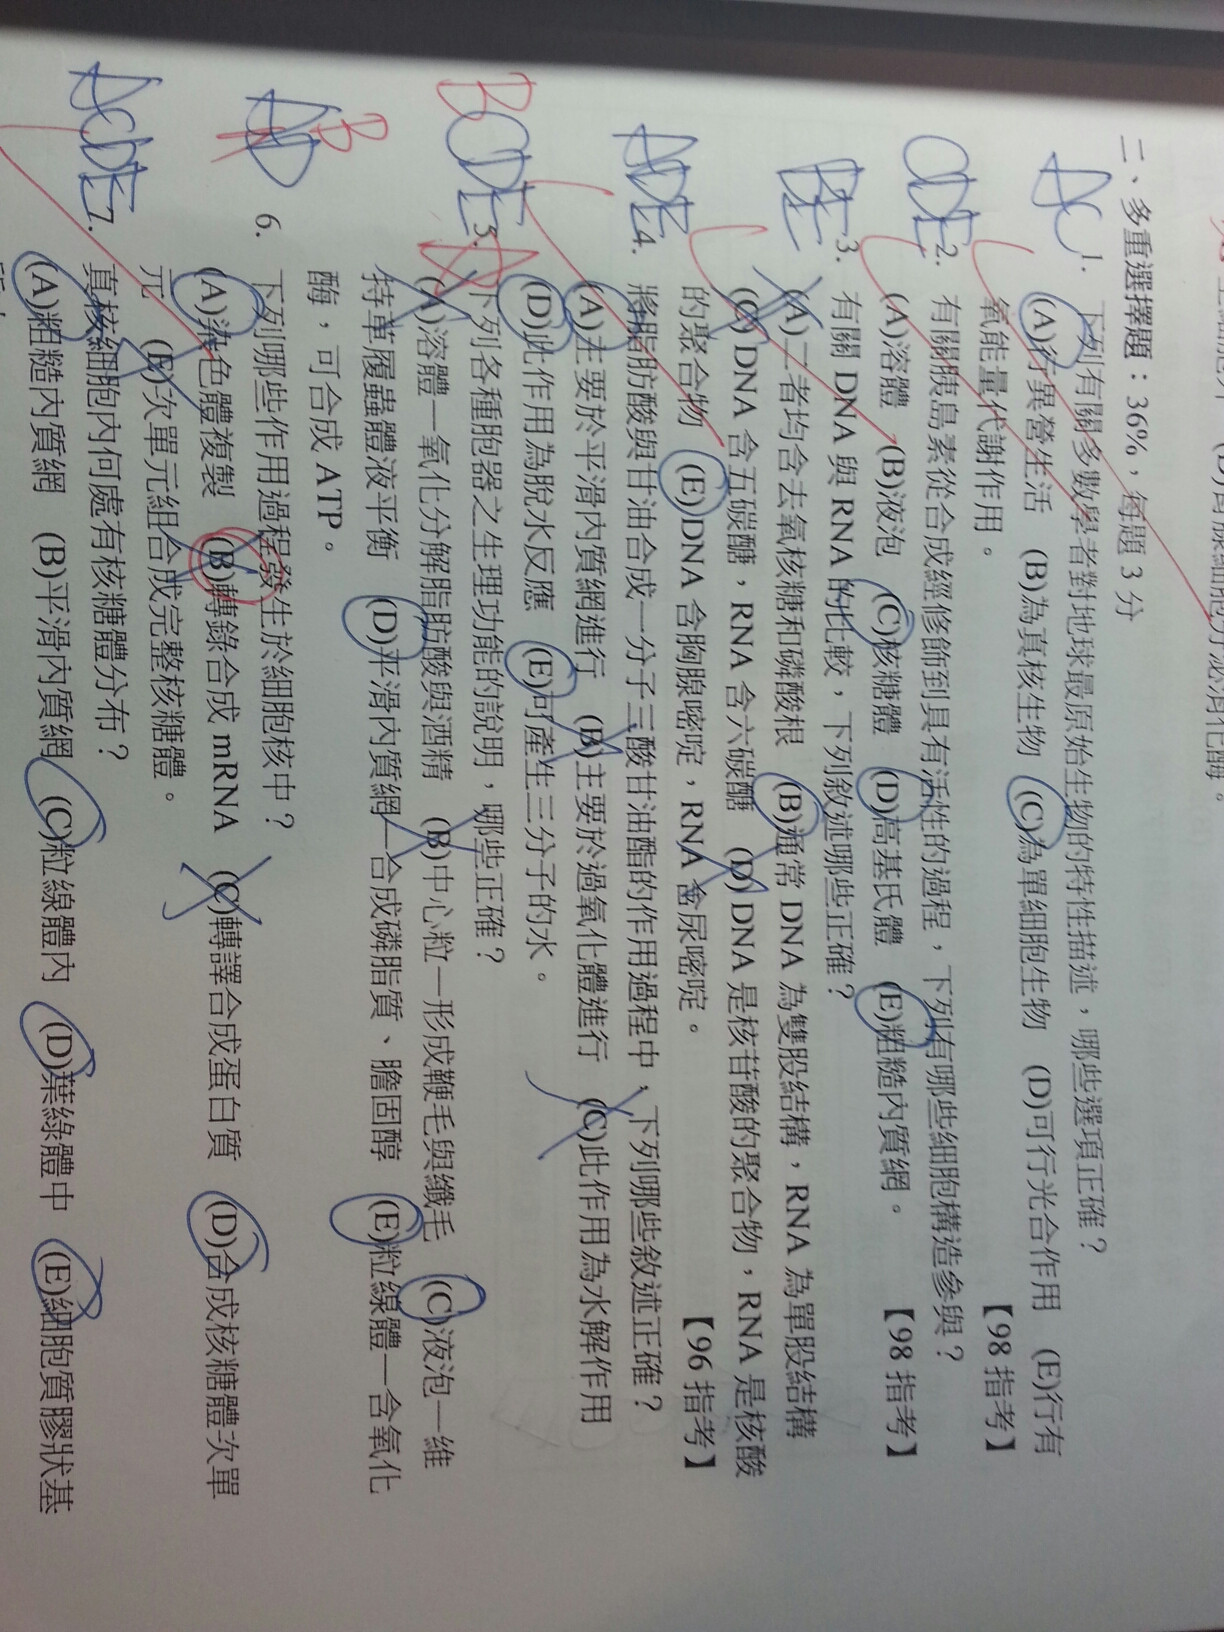 二、多重選擇題：36%，每題 3 分
AC 1. 下列有關多數學者對地球最原始生物的特性描述，哪些選項正確？
(A)行異營生活 (B)為真核生物 (C)為單細胞生物 (D)可行光合作用 (E)行有
氧能量代謝作用。 【98 指考】
CDE 2. 有關胰島素從合成經修飾到具有活性的過程，下列有哪些細胞構造參與？
(A)溶體 (B)液泡 (C)核糖體 (D)高基氏體 (E)粗糙內質網。 【98 指考】
BE 3. 有關 DNA 與 RNA 的比較，下列敘述哪些正確？
(A)二者均含去氧核糖和磷酸根 (B)通常 DNA 為雙股結構，RNA 為單股結構
(C) DNA 含五碳醣，RNA 含六碳醣 (D) DNA 是核苷酸的聚合物，RNA 是核酸
的聚合物 (E) DNA 含胸腺嘧啶，RNA 含尿嘧啶。 【96 指考】
ADE 4. 將脂肪酸與甘油合成一分子三酸甘油酯的作用過程中，下列哪些敘述正確？
(A)主要於平滑內質網進行 (B)主要於過氧化體進行 (C)此作用為水解作用
(D)此作用為脫水反應 (E)可產生三分子的水。
BCDE 5. 下列各種胞器之生理功能的說明，哪些正確？
(A)溶體—氧化分解脂肪酸與酒精 (B)中心粒—形成鞭毛與纖毛 (C)液泡—維
持草履蟲體液平衡 (D)平滑內質網—合成磷脂質、膽固醇 (E)粒線體—含氧化
酶，可合成 ATP。
AD B 6. 下列哪些作用過程發生於細胞核中？
(A)染色體複製 (B)轉錄合成 mRNA (C)轉譯合成蛋白質 (D)合成核糖體次單
元 (E)次單元組合成完整核糖體。
ACDE 7. 真核細胞內何處有核糖體分布？
(A)粗糙內質網 (B)平滑內質網 (C)粒線體內 (D)葉綠體中 (E)細胞質膠狀基